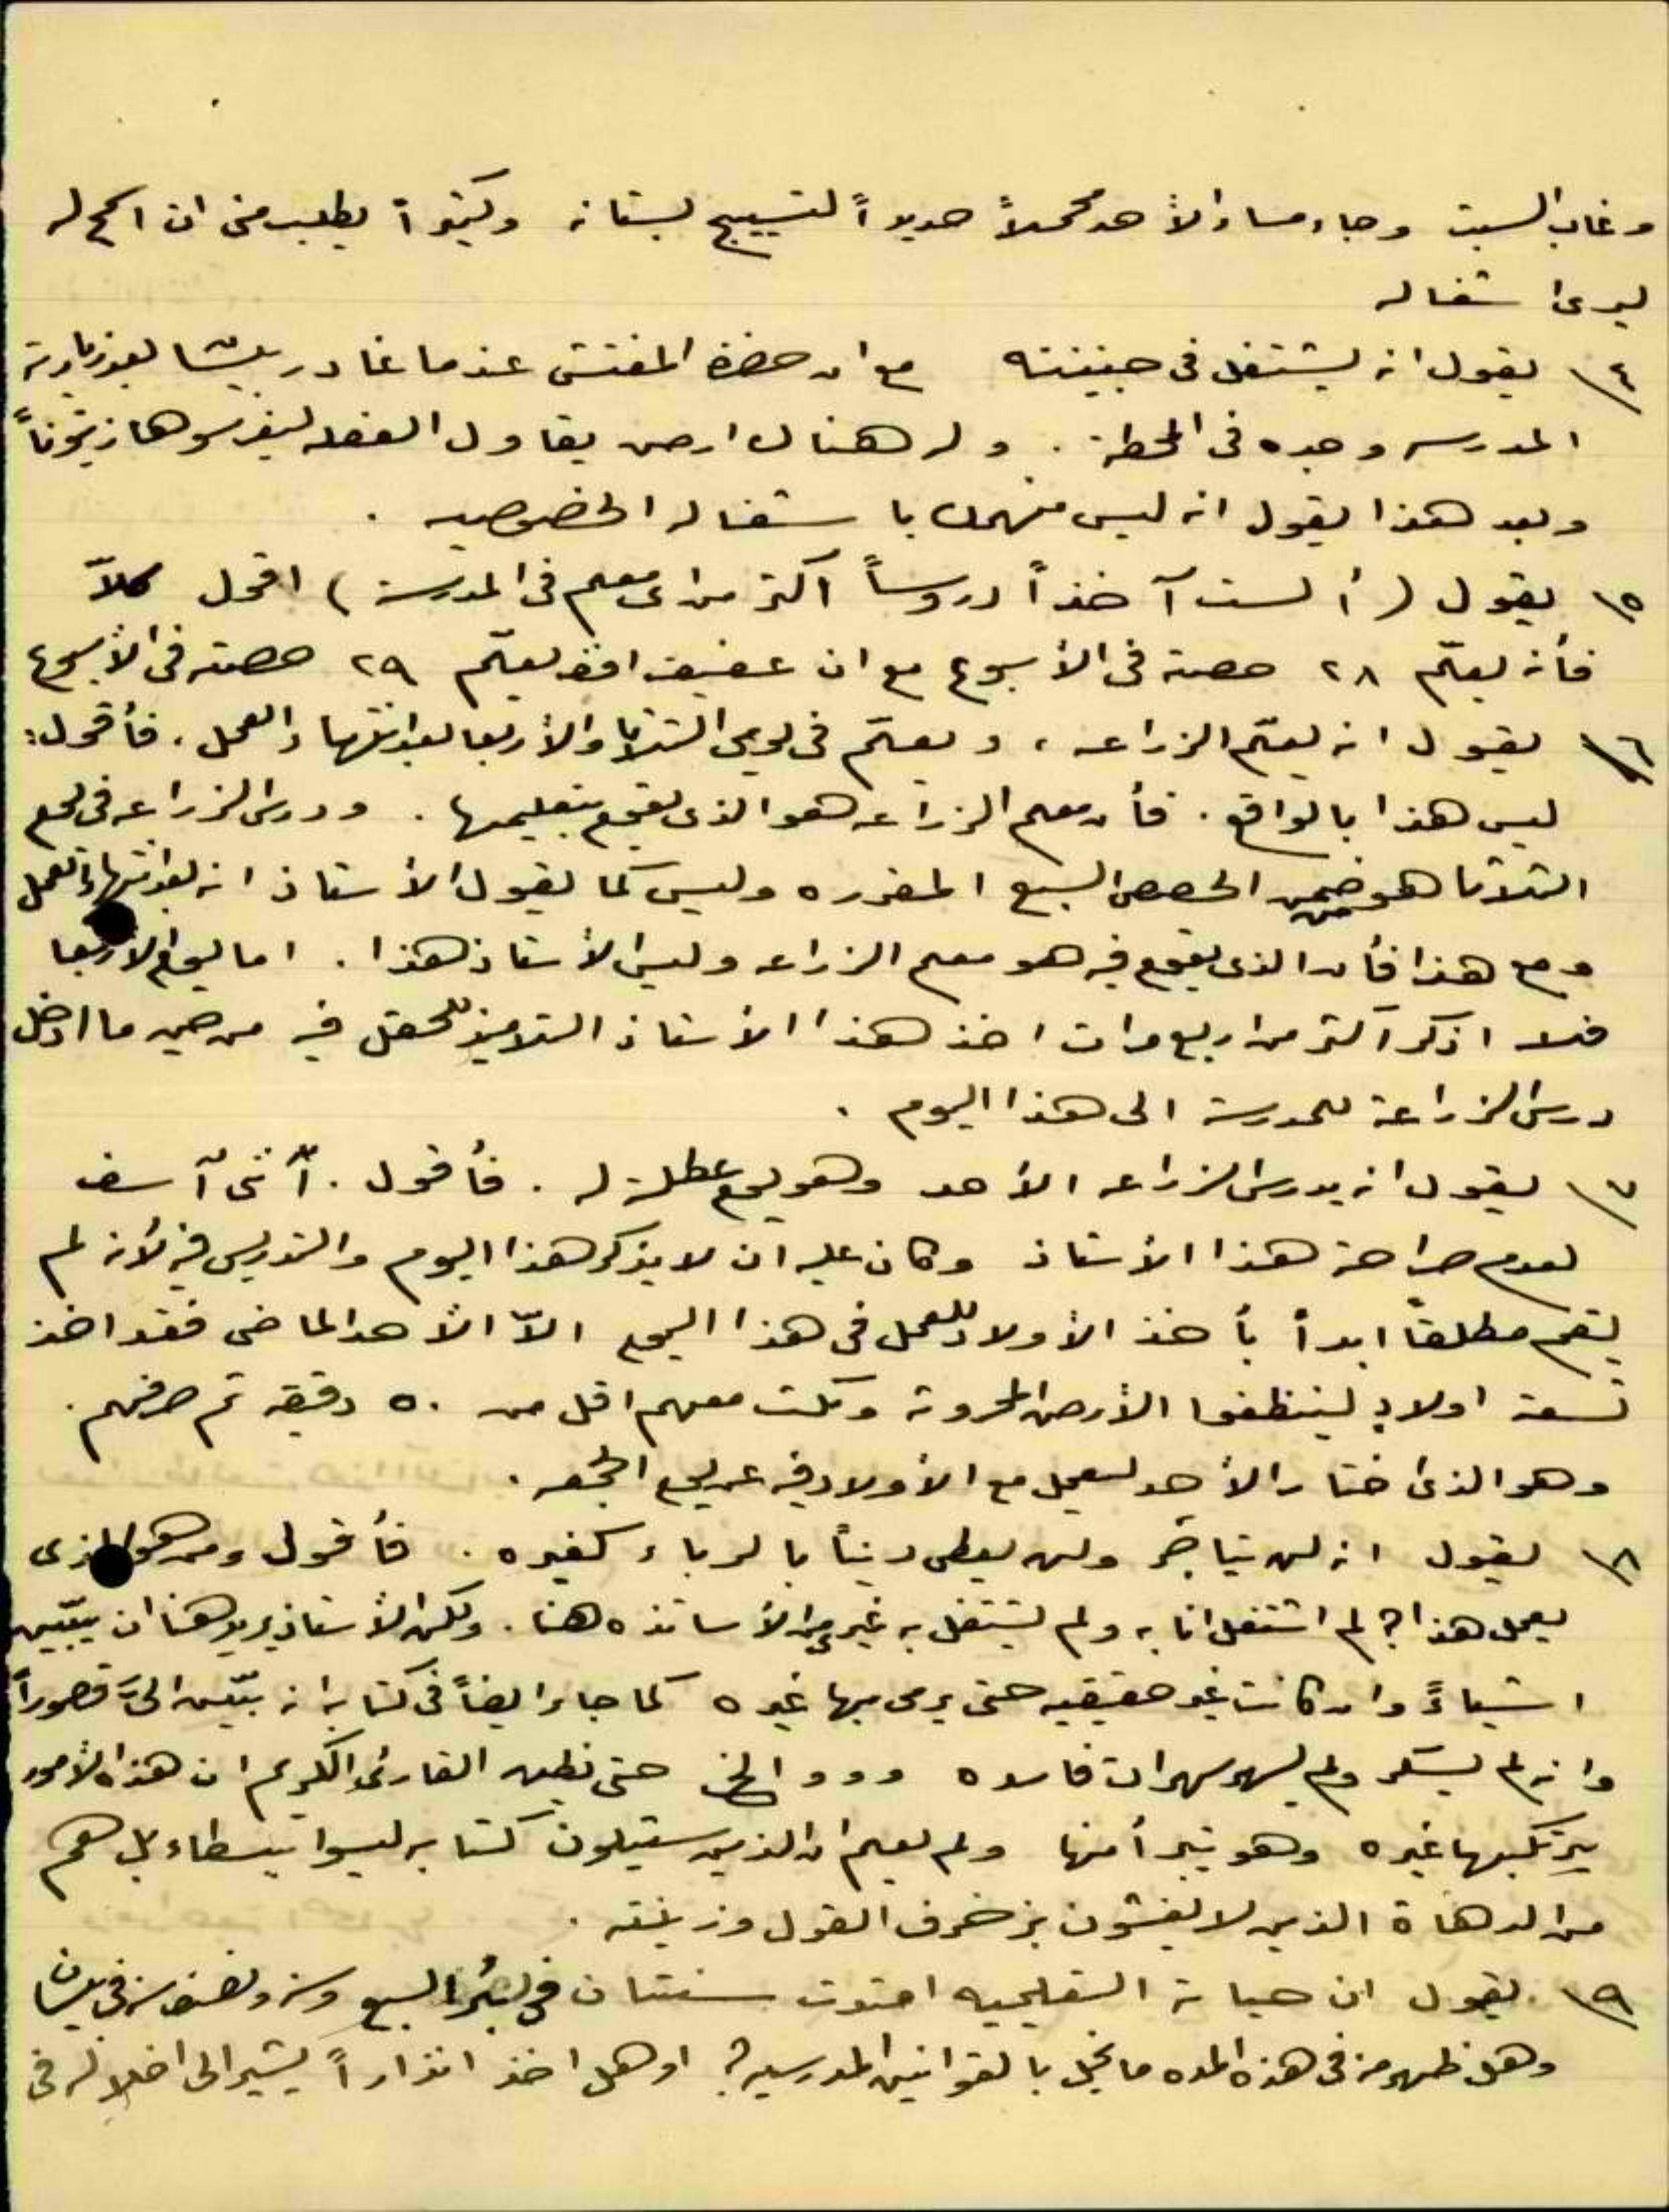 وغاب السبت وجاء مساء الأحد محملاً حديداً لتسييج بستانه وكثيراً يطلب مني ان اسمح له
ليرى اشغاله
٤\ يقول انه يشتغل في جنينته مع ان حضرة المفتش عندما غادر بعد زيارته
المدرسه وجده في المحطة . وله هناك ارض يقاول الفعله ليغرسوها زيتوناً
وبعد هذا يقول انه ليس منهمك باشغاله الخصوصيه .
٥\ يقول (ألست آخذاً دروساً اكثر من اي معلم في المدرسة) اقول كلاّ
فأنه يعلّم ٢٨ حصة في الأسبوع مع ان عفيف افندي يعلّم ٢٩ حصته في الأسبوع
٦\ يقول انه يعلّم الزراعه ، ويعلّم في يومي الثلاثا والأربعا بعد انتهاء العمل . فأقول :
ليس هذا بالواقع . فأن معلم الزراعه هو الذي يقوم بتعليمها . ودرس الزراعه في يوم
الثلاثا هو ضمن الحصص السبع المقرره وليس كما يقول الأستاذ انه بعد انتهاء العمل
ومع هذا فأن الذي يقوم فيه هو معلم الزراعه وليس الأستاذ هذا . اما يوم الاربعا
فلا اذكر اكثر من اربع مرات اخذ هذا الأستاذ التلاميذ للحقل فيه من حين ما ادخل
درس الزراعة للمدرسة الى هذا اليوم .
٧\ يقول انه يدرس الزراعه الأحد وهو يوم عطلة له . فأقول . أنني آسف
لعدم صراحة هذا الأستاذ وكان عليه ان لا يذكر هذا اليوم والتدريس فيه لأنه لم
يقم مطلقاً ابداً بأخذ الأولاد للعمل في هذا اليوم الاّ الأحد الماضي فقد اخذ
تسعة اولاد لينظفوا الأرض المحروثة ومكث معهم اقل من ٥٠ دقيقه ثم صرفهم .
وهو الذي اختار الأحد ليعمل مع الأولاد فيه عن يوم الجمعه .
٨\ يقول انه لن يتاجر ولن يعطى ديناً بالرباء كغيره . فأقول ومن هو الذي
يعمل هذا ؟ لم اشتغل انا به ولم يشتغل به غيري من الأساتذه هنا . ولكن الأستاذ يريد هنا ان يبيّن
اشياءً وان كانت غير حقيقيه حتى يرمى بها غيره كما جاء ايضاً في كتابه انه بيّن اليّ قصوراً
وانه لم يسكر ولم يسهر سهرات فاسده و و و الخ حتى يظن القارئ الكريم ان هذه الأمور
يرتكبها غيره وهو يتبرأ منها ولم يعلم ان الذين سيتلون كتابه ليسوا ببسطاء بل هم
من الدهاة الذين لا يغشون بزخرف القول وزينته .
٩\ يقول ان حياته التعليميه احتوت سنتان في بئر السبع وسنه ونصف سنه في بيسان
وهل ظهر منه في هذه المده ما يخل بالقوانين المدرسيه ؟ او هل اخذ انذاراً يشير الى اخلاله في